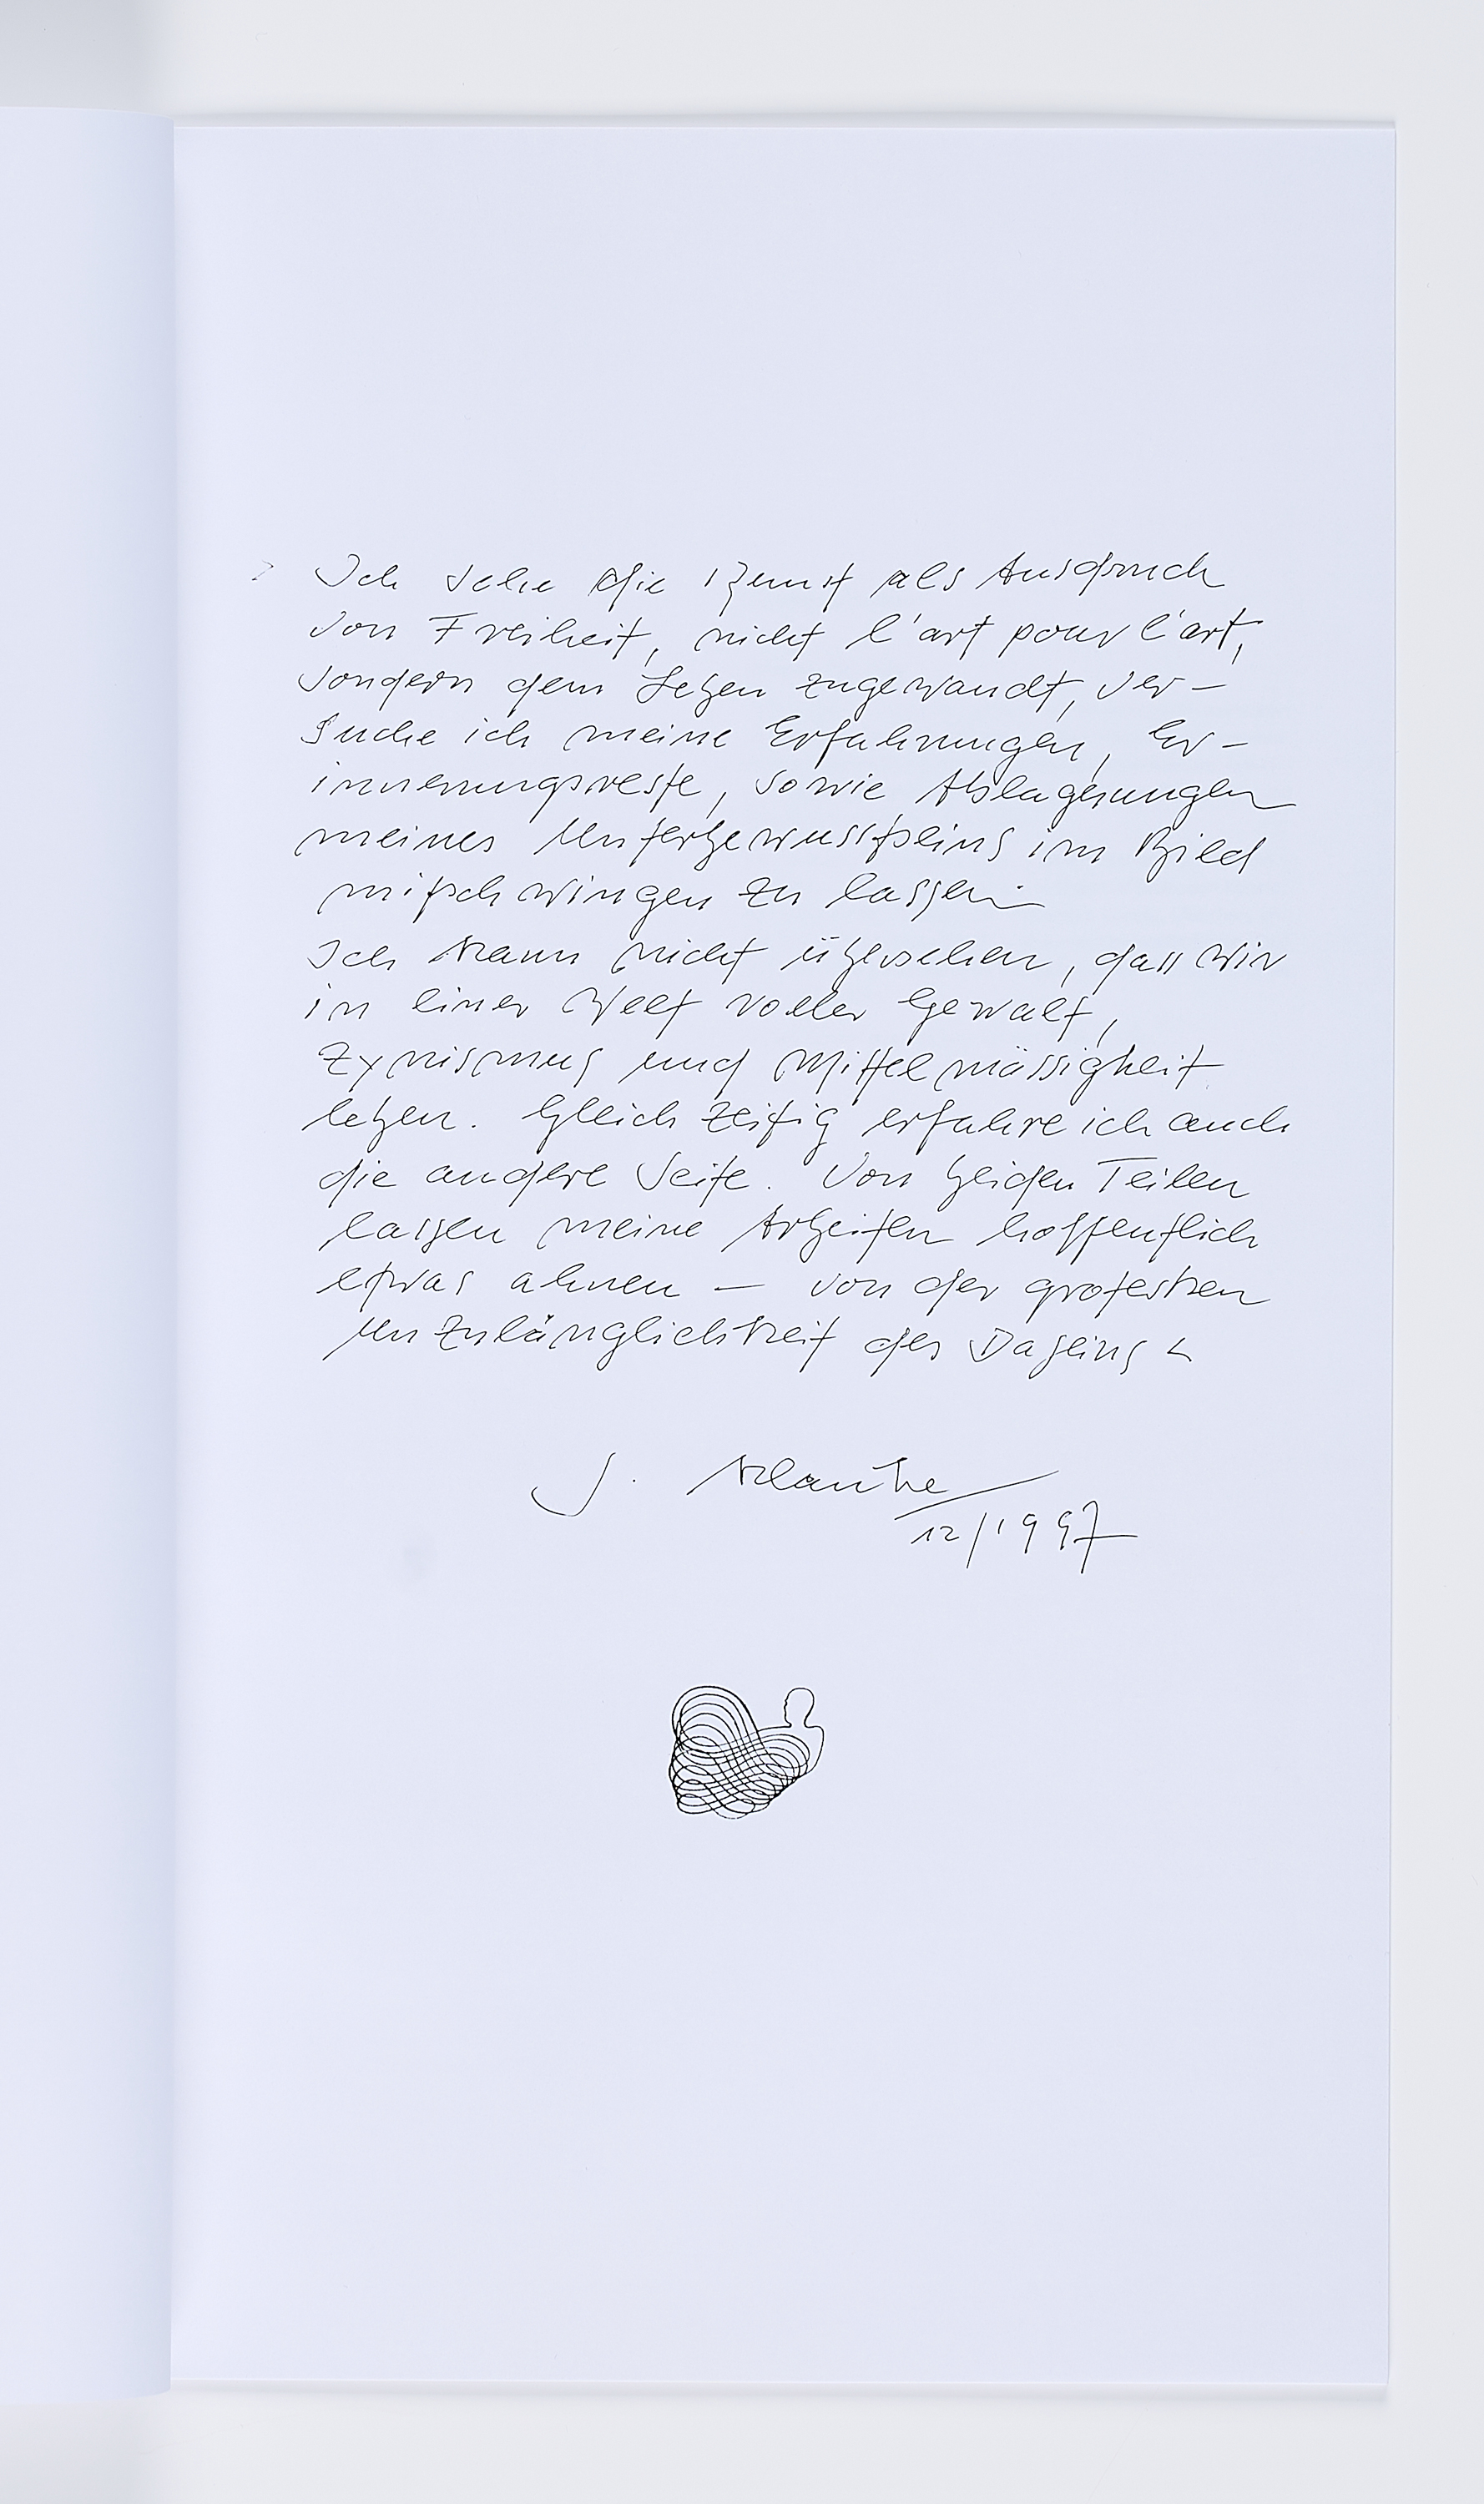 Ich sehe die Kunst als Ausdruck
von Freiheit, nicht l'art pour l'art,
sondern dem Leben zugewandt, ver-
suche ich meine Erfahrungen, Er-
innerungsreste, sowie Ablagerungen
meines Unterbewusstseins im Bild
mitschwingen zu lassen.
Ich kann nicht übersehen, dass wir
in einer Welt voller Gewalt,
Zynismus und Mittelmässigkeit
leben. Gleichzeitig erfahre ich auch
die andere Seite. Von beiden Teilen
lassen meine Arbeiten hoffentlich
etwas ahnen — von der grotesken
Unzulänglichkeit des Daseins
J.
12/1997